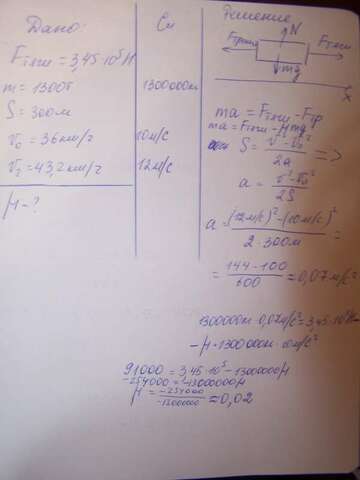 Дано:
Си
Решение
Fтяги = 3,45·10⁵Н
m = 1300т
1300000кг
S = 300м
v₀ = 36км/г
10м/с
v₂ = 43,2км/г
12м/с
μ - ?
N
Fтрен
Fтяги
mg
x
ma = Fтяги - Fтр
ma = Fтяги - μmg
S = v² - v₀² / 2a =>
a = v² - v₀² / 2S
a = (12м/с)² - (10м/с)² / 2·300м =
= 144 - 100 / 600 = 0,07м/с²
1300000кг · 0,07м/с² = 3,45·10⁵Н -
- μ·1300000кг·10м/с²
91000 = 3,45·10⁵ - 13000000μ
-254000 = -13000000μ
μ = -254000 / -13000000 = 0,02